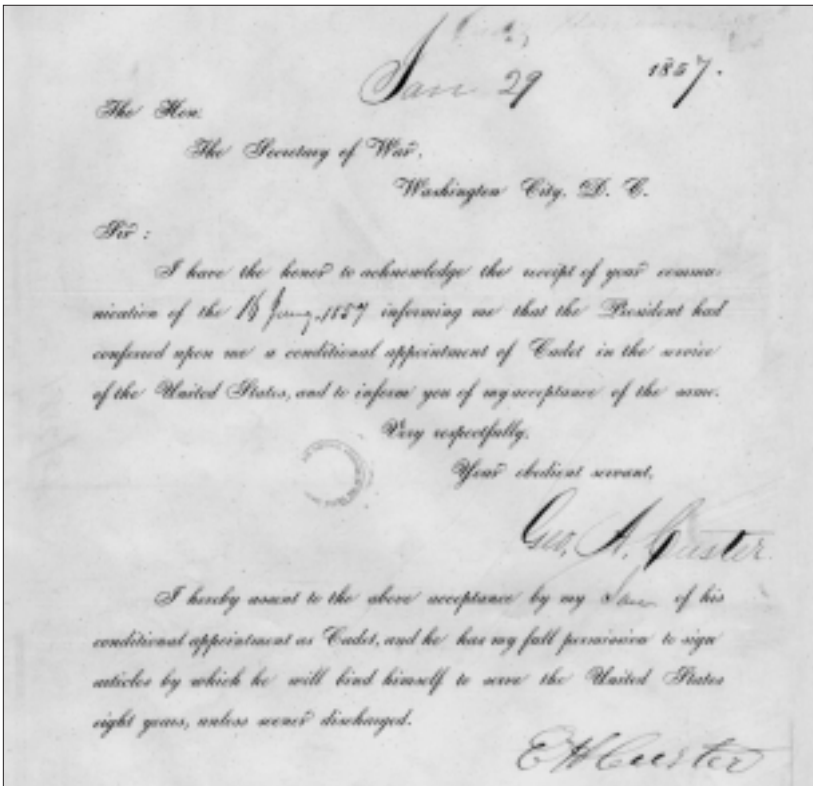 Jan 29 1857.
The Hon.
The Secretary of War,
Washington City, D. C.
Sir:
I have the honor to acknowledge the receipt of your commu-
nication of the Jany. 1857 informing me that the President had
conferred upon me a conditional appointment of Cadet in the service
of the United States, and to inform you of my acceptance of the same.
Very respectfully,
Your obedient servant,
Geo. A. Custer
I hereby assent to the above acceptance by my Son of his
conditional appointment as Cadet, and he has my full permission to sign
articles by which he will bind himself to serve the United States
eight years, unless sooner discharged.
E H Custer